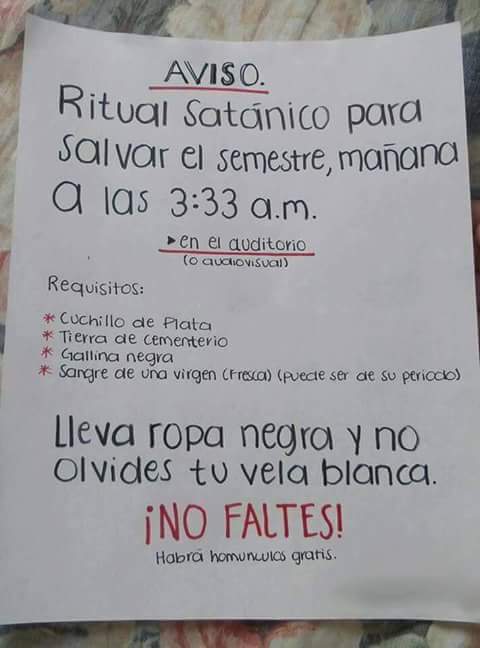 AVISO.
Ritual Satánico para
salvar el semestre, mañana
a las 3:33 a.m.
▸en el auditorio
(o audiovisual)
Requisitos:
* Cuchillo de Plata
* Tierra de cementerio
* Gallina negra
* Sangre de una virgen (Fresca) (puede ser de su periodo)
Lleva ropa negra y no
olvides tu vela blanca.
¡NO FALTES!
Habrá homunculos gratis.